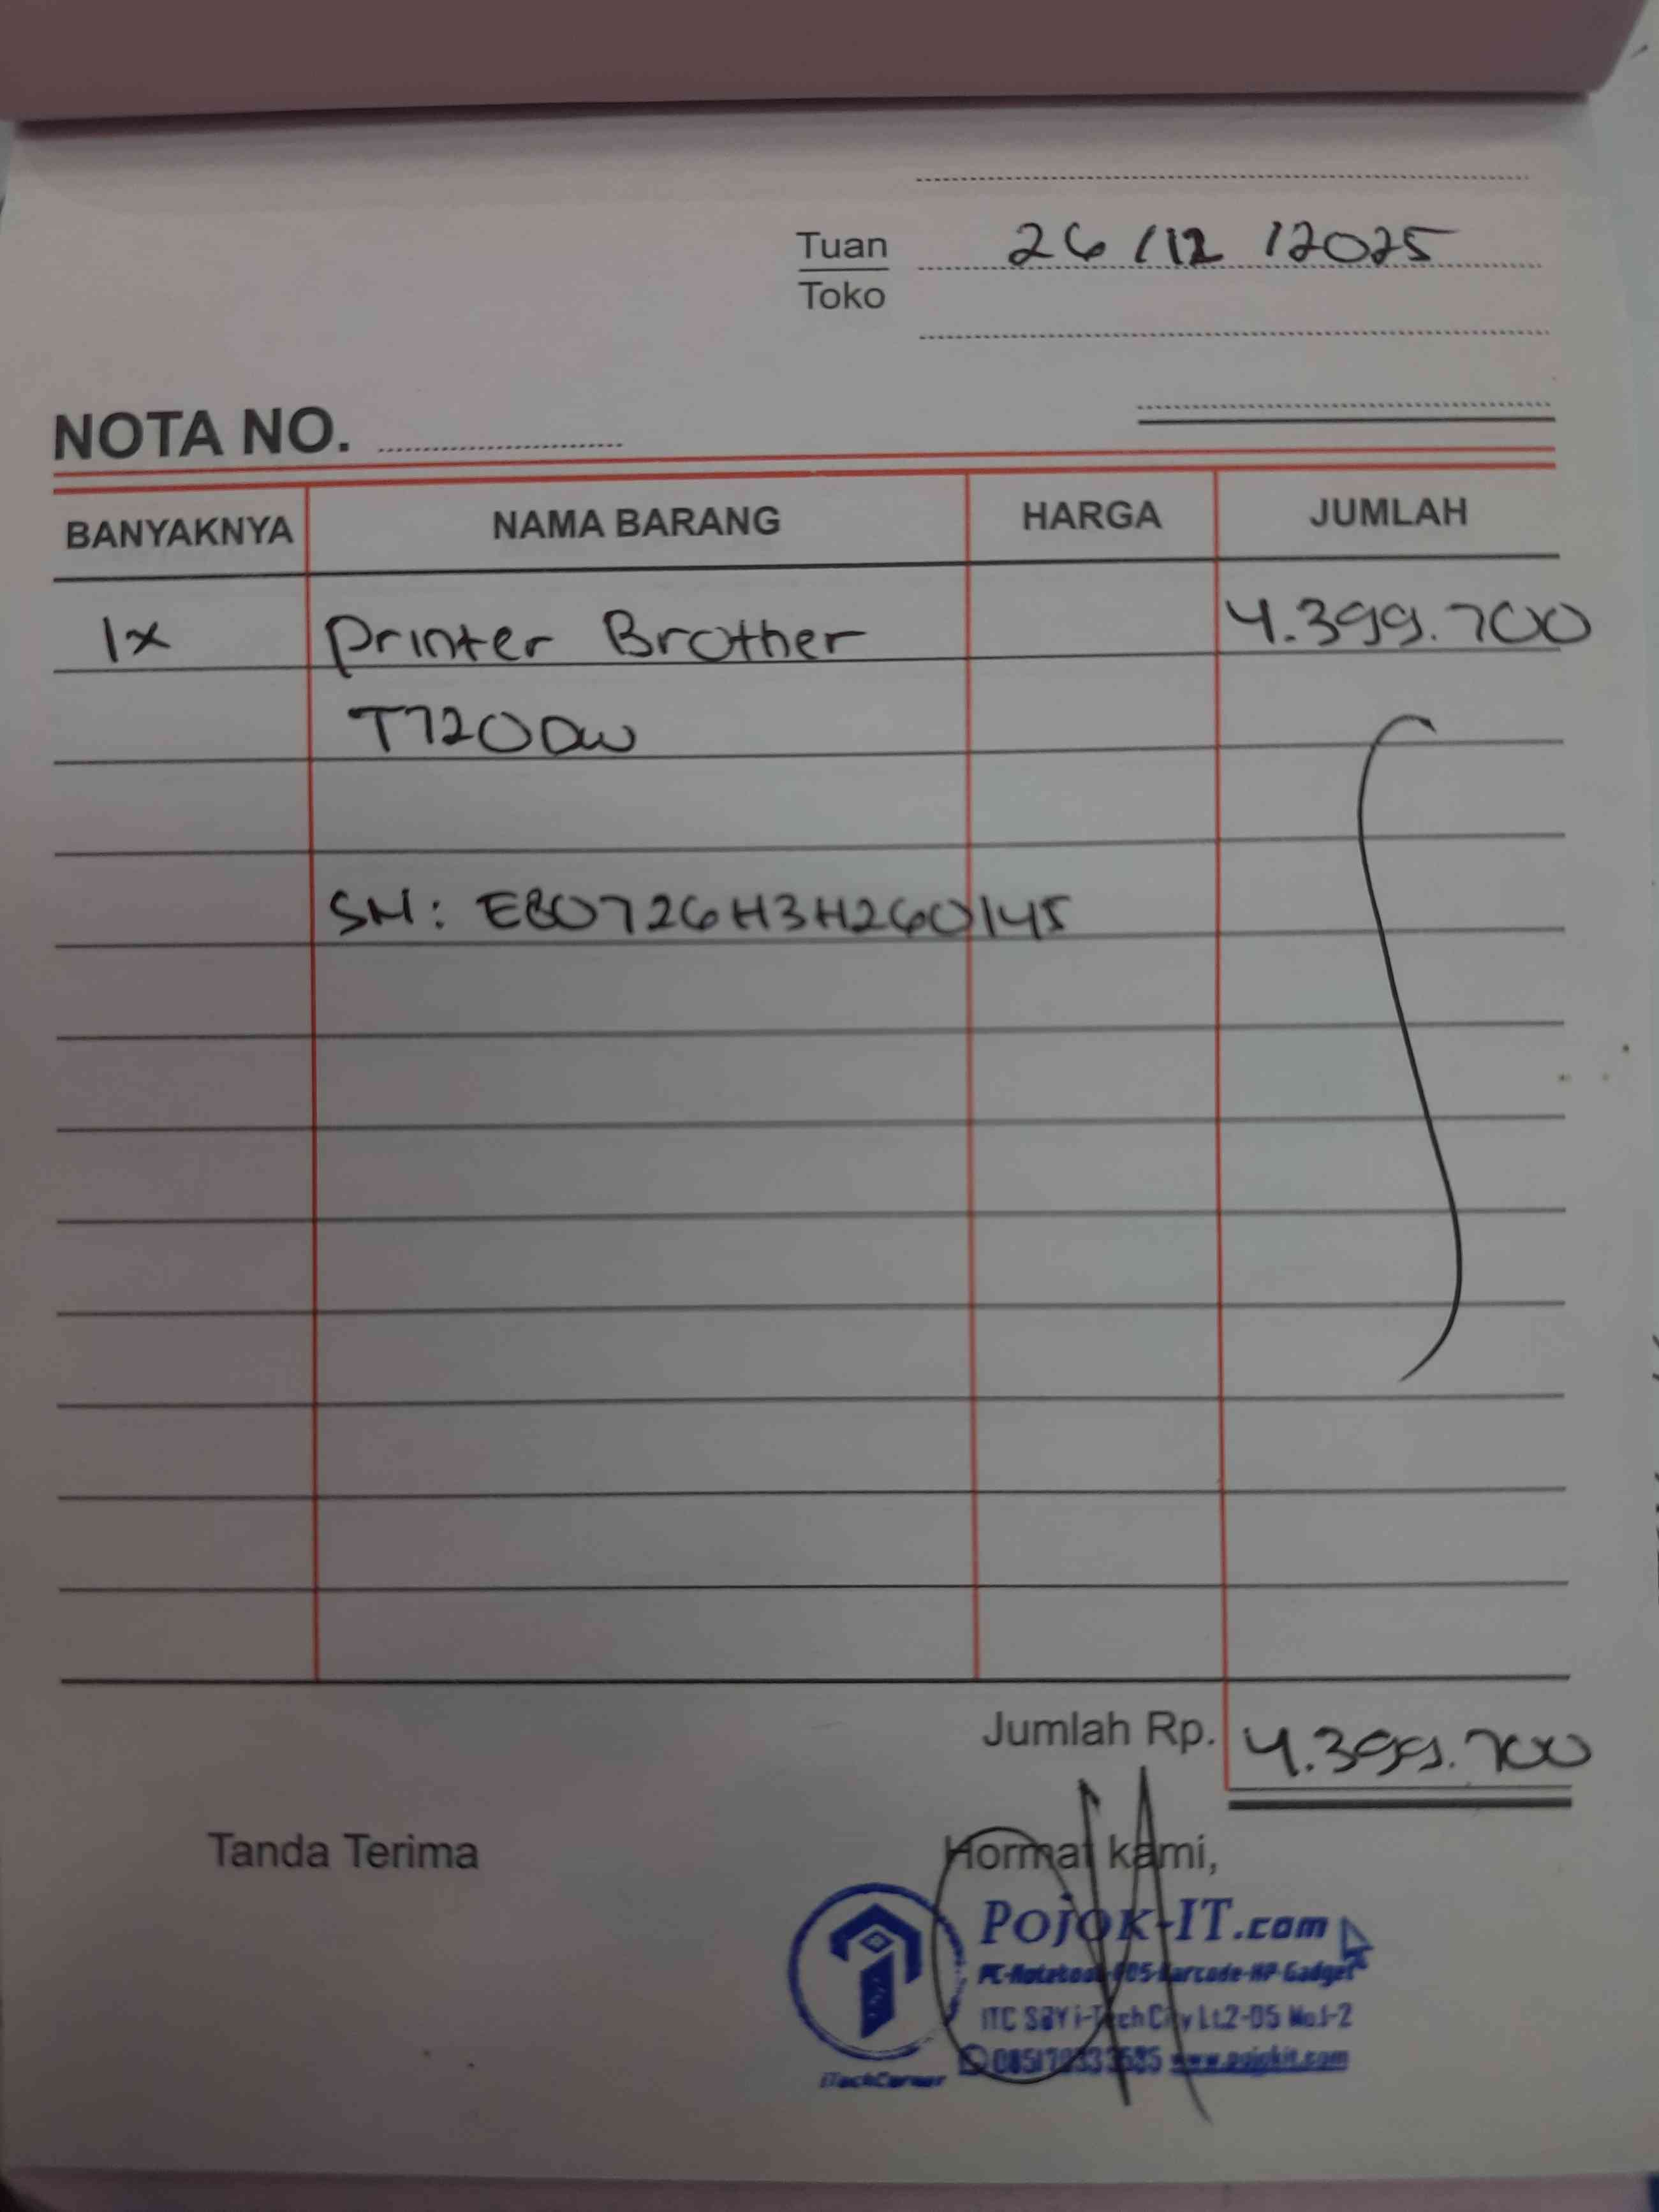 Tuan 26/12/2025
Toko
NOTA NO.
BANYAKNYA NAMA BARANG HARGA JUMLAH
1x Printer Brother 4.399.700
T720DW
SN: E80726H3H260145
Jumlah Rp. 4.399.700
Tanda Terima Hormat kami,
POJOK-IT.com
PC-Notebook-POS-Barcode-HP-Gadget
ITC SBY i-Tech City Lt.2-D5 No.1-2
www.pojokit.com
iTechCorner